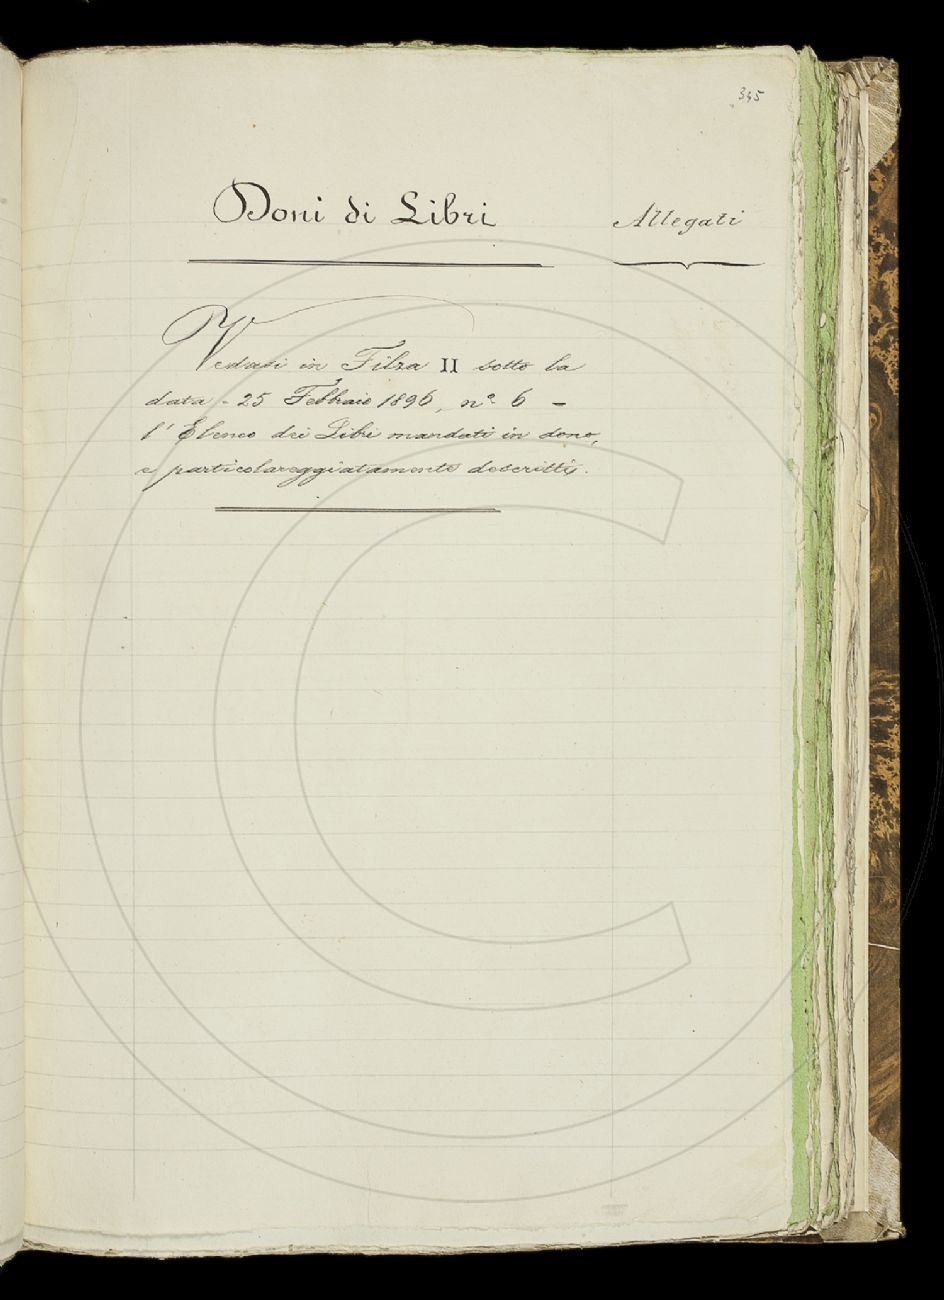 345
Doni di Libri
Allegati
Vedasi in Filza II sotto la
data - 25 Febbraio 1896, nº 6 -
l'Elenco dei Libri mandati in dono,
e particolareggiatamente descritti.